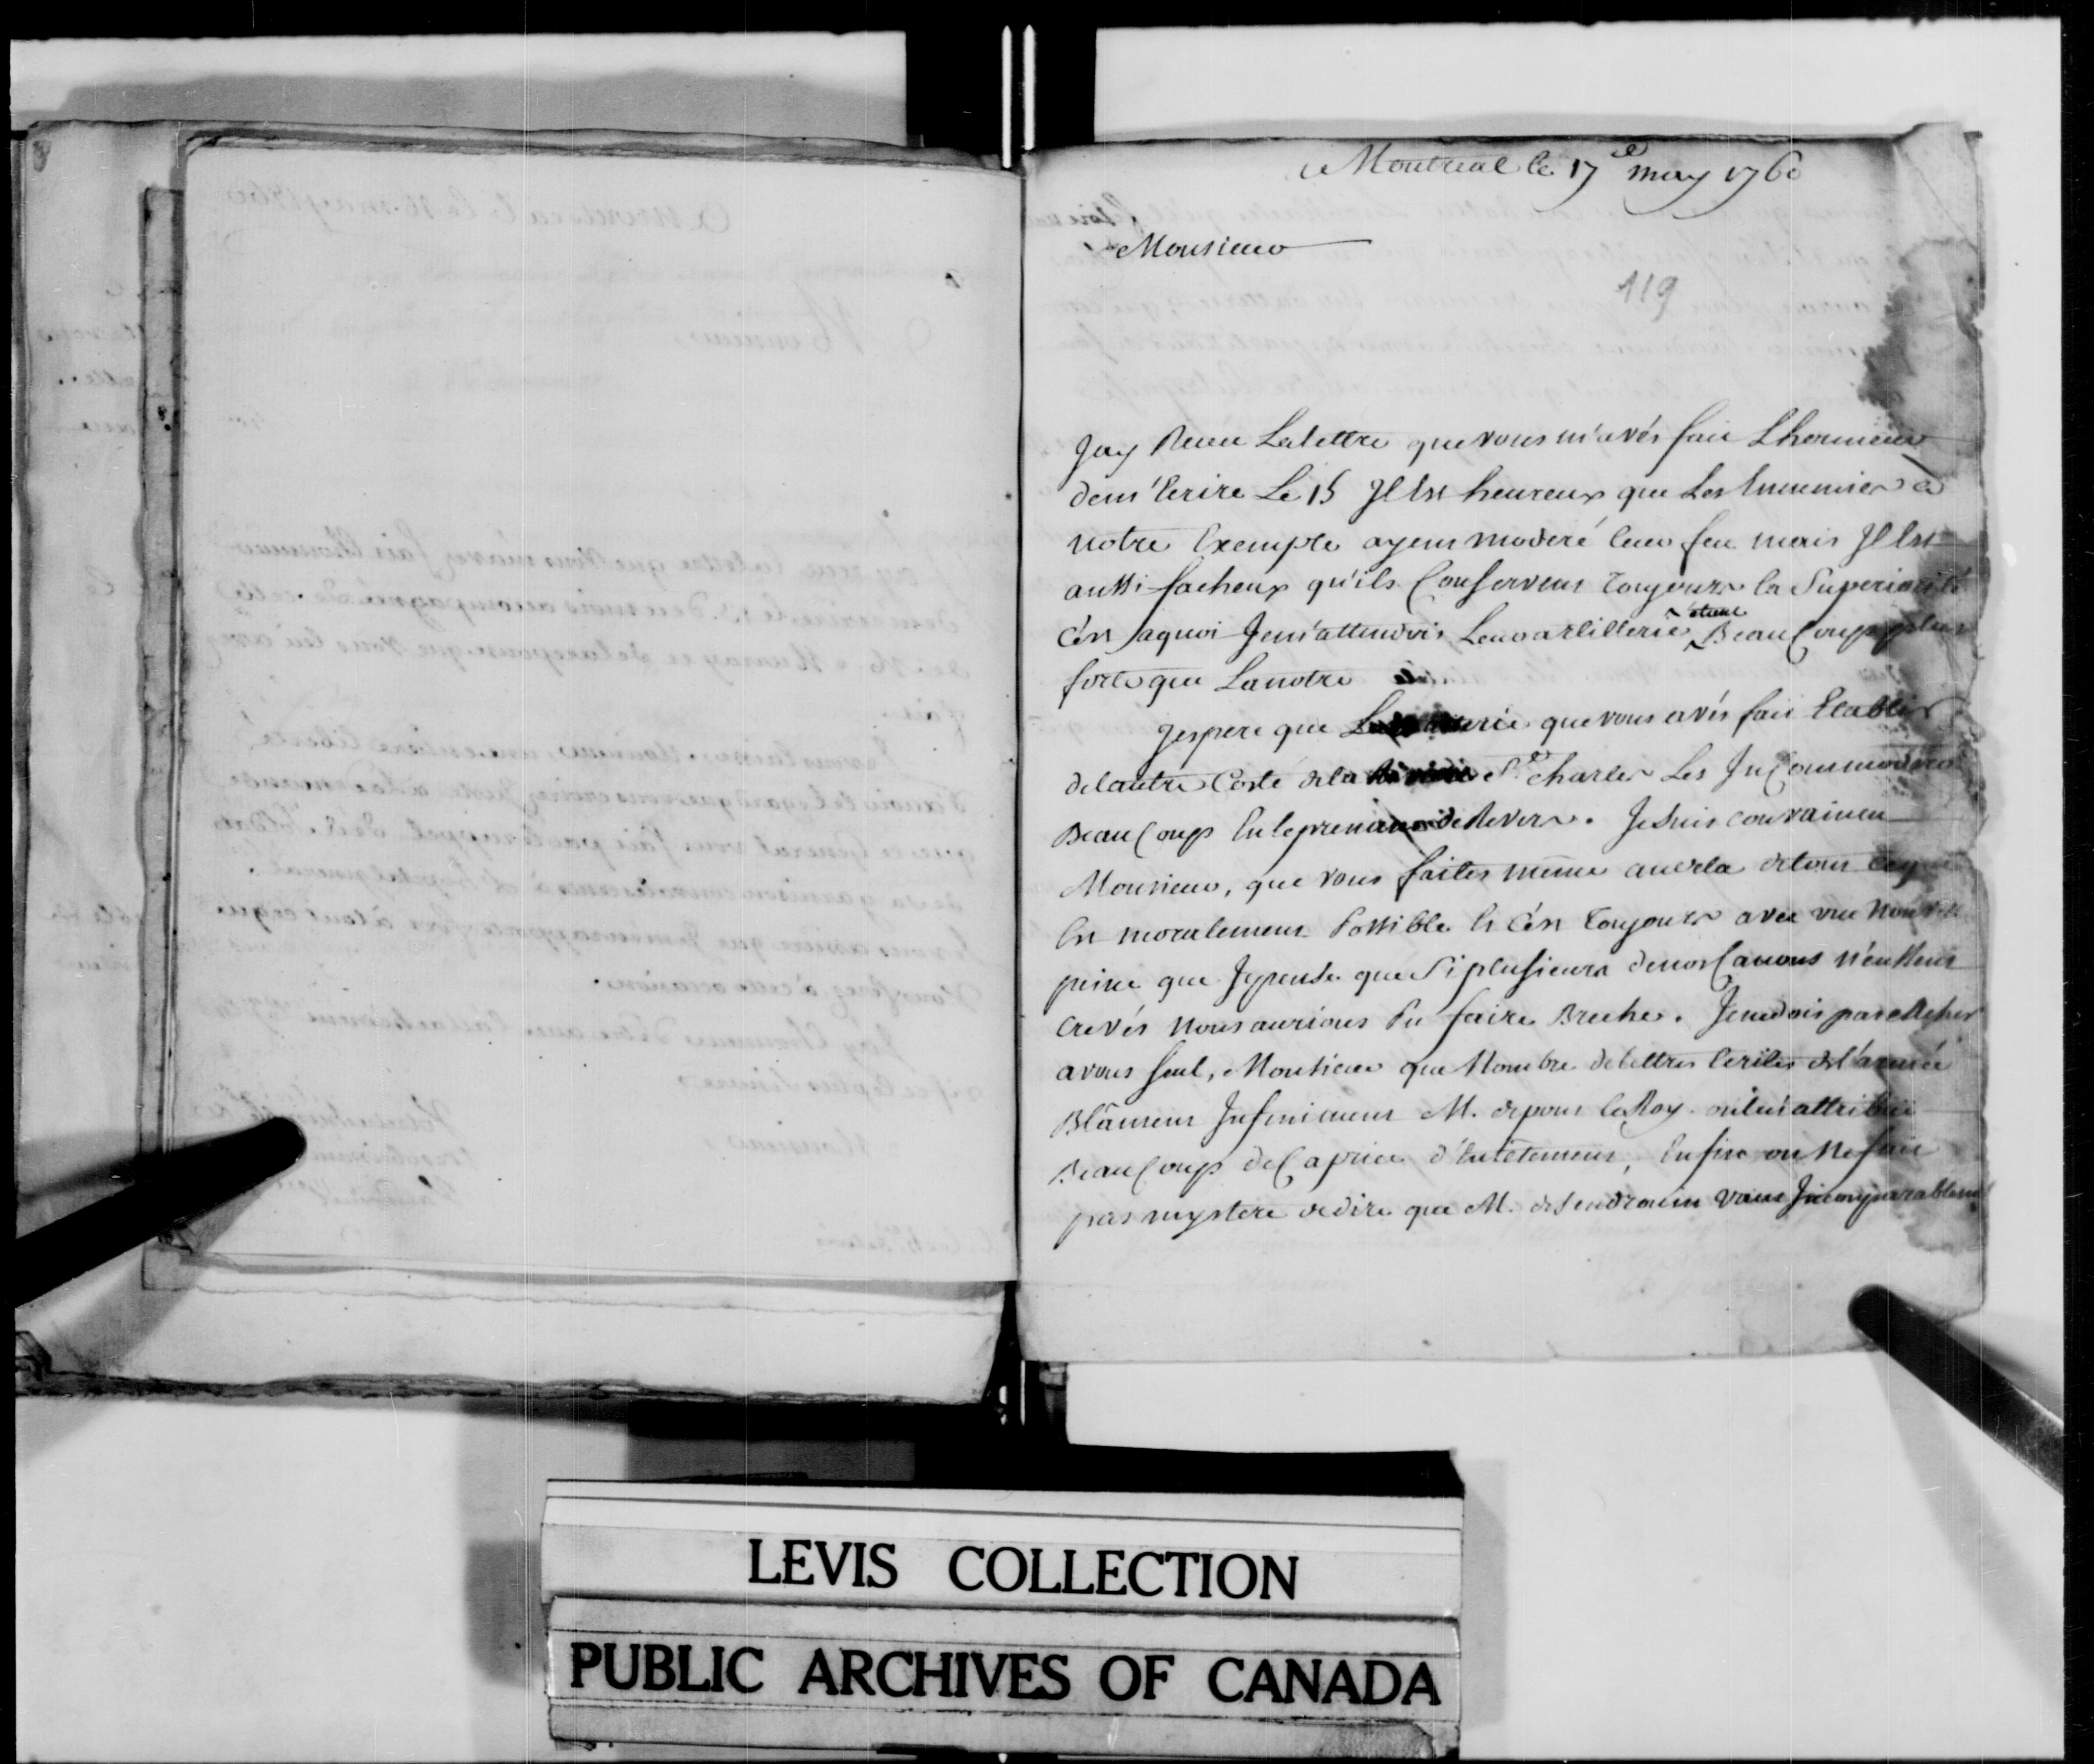 a Montreal le 17e may 1760
Monsieur
119
Jay Recu La lettre que vous m'avés fait L'honneur
de m'Ecrire Le 15 Il Est heureux que Les Ennemies a
notre Exemple ayent moderé leur feu mais Il Est
aussi facheux qu'ils Conservent toujours la Superiorité
C'est a quoi Je m'attendois Leur artillerie étant BeauCoup plus
forte que La notre
Jespere que La Batterie que vous avés fait Etablir
de lautre Costé de la Riviere St Charles Les InCommodera
BeauCoup En le prenant de Revers. Je Suis convaincu
Monsieur, que vous faites même audela de tout ce qui
Est moralement Possible Et C'est toujours avec une nouvelle
peine que Je pense que Si plusieurs de nos Canons n'eussent
crevés nous aurions Pu faire Breche. Je ne dois pas cacher
a vous seul, Monsieur que Nombre de lettres Ecrites de l'armée
Blâment Infiniment M. de pont le Roy on lui attribue
BeauCoup de Caprice d'Entetement, Enfin on ne fait
pas mystere de dire que M. desandrouin vaut Incomparablemt
LEVIS COLLECTION
PUBLIC ARCHIVES OF CANADA